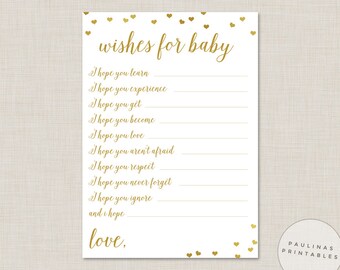 wishes for baby
I hope you learn
I hope you experience
I hope you get
I hope you become
I hope you love
I hope you aren't afraid
I hope you respect
I hope you never forget
I hope you ignore
and i hope
love,
PAULINAS
PRINTABLES